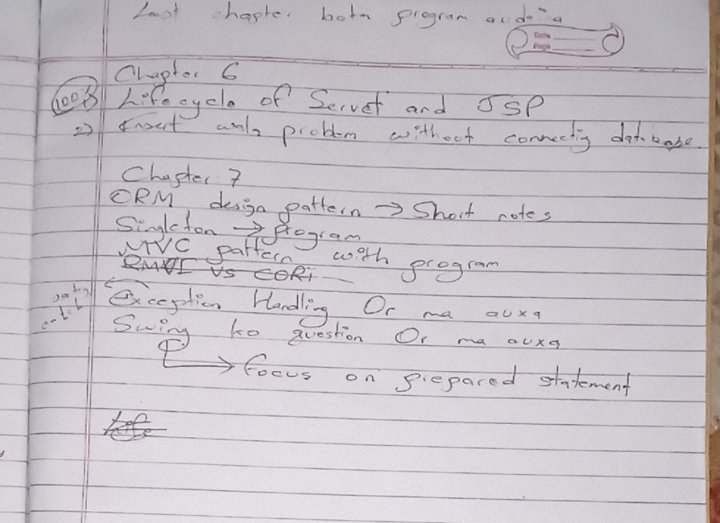 Last chapter bata program audaina
Date
Page
Chapter 6
100% Life cycle of Servet and JSP
2) Insert wala problem without connectig database.
Chapter 7
ORM design pattern → Short notes
Singleton → program
MVC pattern with program
RMVI vs CORi
Exception Handling Or ma auxa
catch
Swing ko question Or ma auxa
→ focus on prepared statement